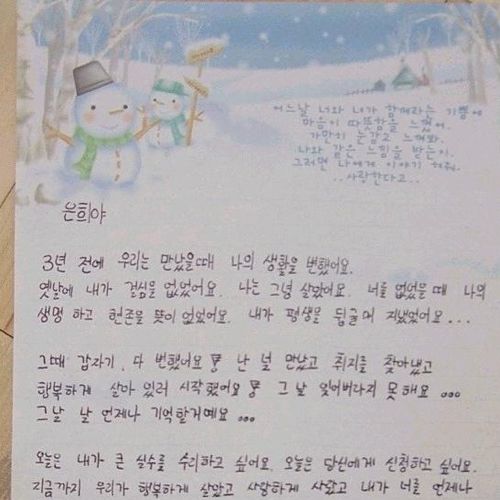 어느날 너와 내가 함께라는 기쁨에
마음이 따뜻함을 느꼈어.
가만히 눈감고 느껴봐.
나와 같은 느낌을 받는이.
그러면 나에게 이야기 해줘.
..사랑한다고..
은희야
3년 전에 우리는 만났을때 나의 생활을 변했어요.
옛날에 내가 결심을 없었어요. 나는 그냥 살았어요. 너를 없었을 때 나의
생명 하고 현존을 뜻이 없었어요. 내가 평생을 뒹굴며 지냈었어요...
그때 갑자기, 다 변했어요 난 널 만났고 취지를 찾아냈고
행복하게 살아 있러 시작했어요 그 날 잊어버리지 못해요 ...
그날 날 언제나 기억할거예요 ...
오늘은 내가 큰 실수를 수리하고 싶어요. 오늘은 당신에게 신청하고 싶어요.
지금까지 우리가 행복하게 살았고 사랑하게 사랐고 내가 너를 언제나